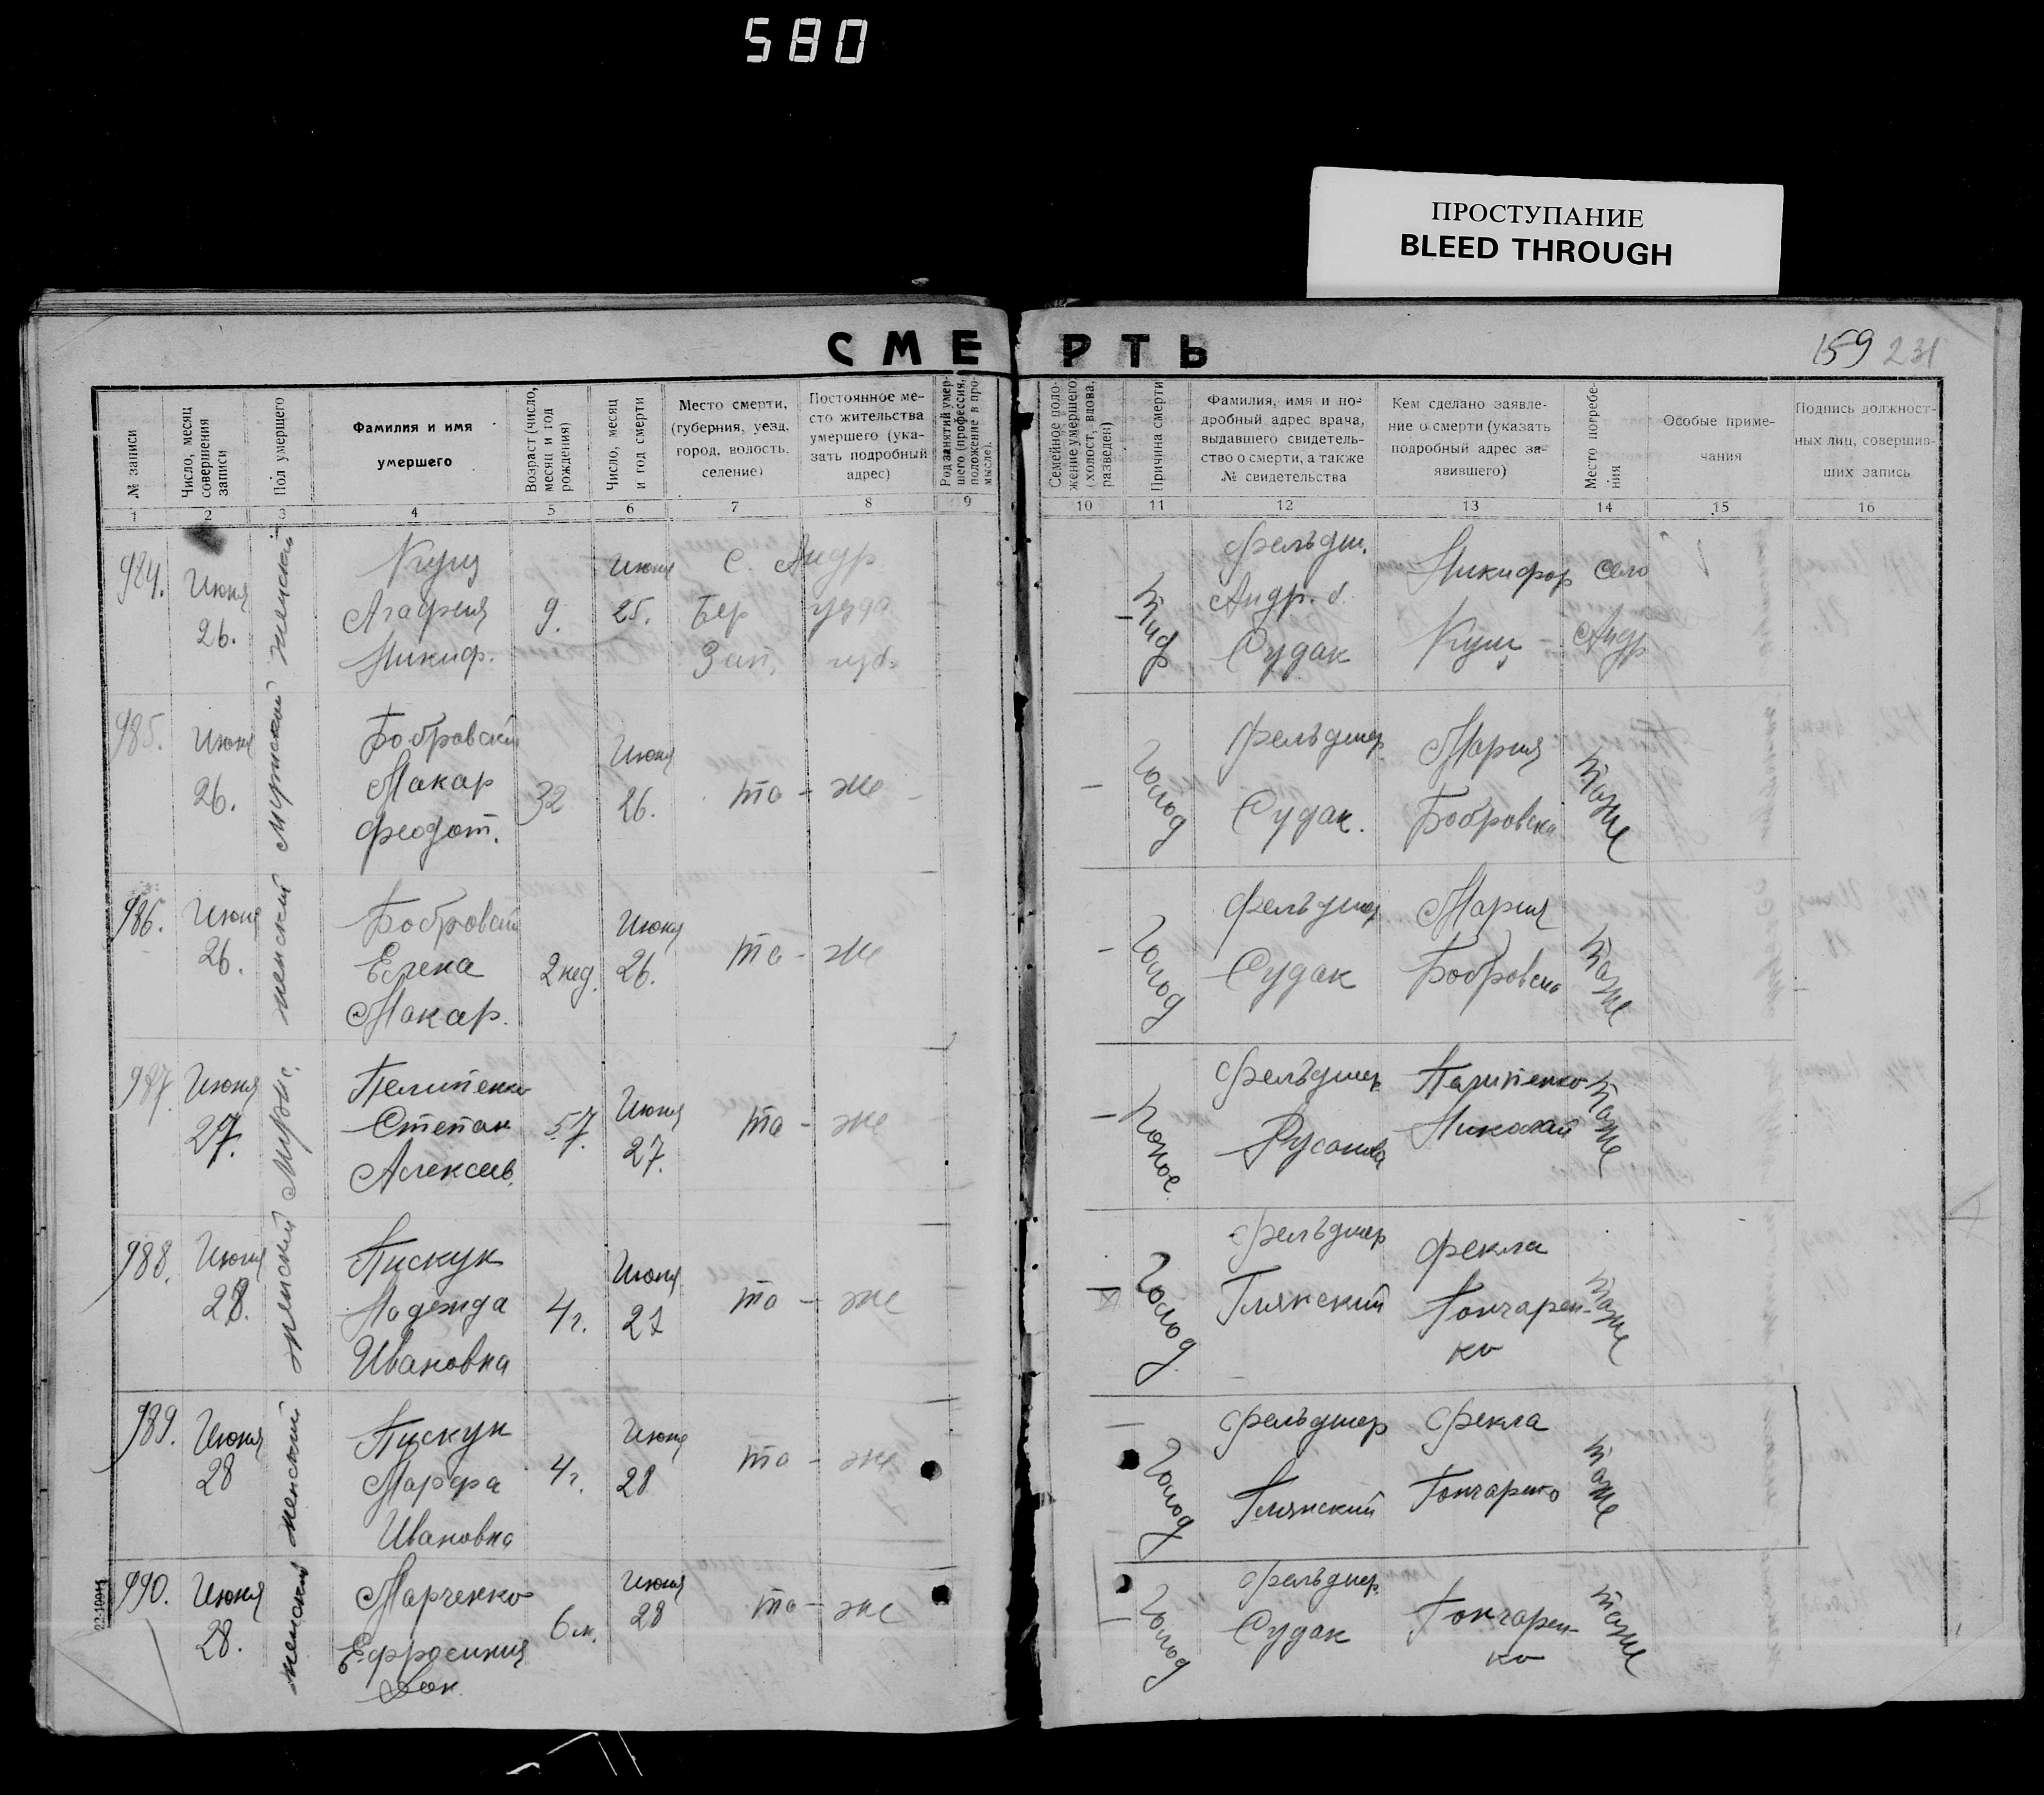 580
ПРОСТУПАНИЕ
BLEED THROUGH
СМЕРТЬ
159 231
№ записи
Число, месяц совершения записи
Пол умершего
Фамилия и имя умершего
Возраст (число, месяц и год рождения)
Число, месяц и год смерти
Место смерти, (губерния, уезд, город, волость, селение)
Постоянное место жительства умершего (указать подробный адрес)
Род занятий умершего (профессия, положение в промысле).
Семейное положение умершего (холост, вдова, разведен)
Причина смерти
Фамилия, имя и подробный адрес врача, выдавшего свидетельство о смерти, а также № свидетельства
Кем сделано заявление о смерти (указать подробный адрес заявившего)
Место погребения
Особые примечания
Подпись должностных лиц, совершивших запись
1 2 3 4 5 6 7 8 9 10 11 12 13 14 15 16
984. Июня 26. женский
Кущ Агафия Никиф.
9. Июня 25.
С. Андр. Бер. уезда Зап. губ.
Тиф
Фельдш. Андр. б. Судак
Никифор Кущ
Село Андр
985. Июня 26. мужской
Бобровский Макар Феодот.
32 Июня 26.
то - же
Голод
Фельдшер Судак.
Мария Бобровска
тоже
986. Июня 26. женский
Бобровск Елена Макар.
2 нед. Июня 26.
то - же
Голод
Фельдшер Судак
Мария Бобровска
тоже
987. Июня 27. Мужс.
Пелипенко Степан Алексеев.
57. Июня 27.
то - же
Фельдшер
Николай
тоже
988. Июня 28. женский
Пискун Надежда Ивановна
4 г. Июня 27
то - же
Голод
Фельдшер Глинский
Фекла Гончаренко
тоже
989. Июня 28 женский
Пискун Марфа Ивановна
4 г. Июня 28
то - же
Голод
Фельдшер Глинский
Фекла Гончаренко
тоже
990. Июня 28. женский
Марченко Ефросиния
6 м. Июня 28
то - же
Голод
Фельдшер Судак
Гончаренко
тоже